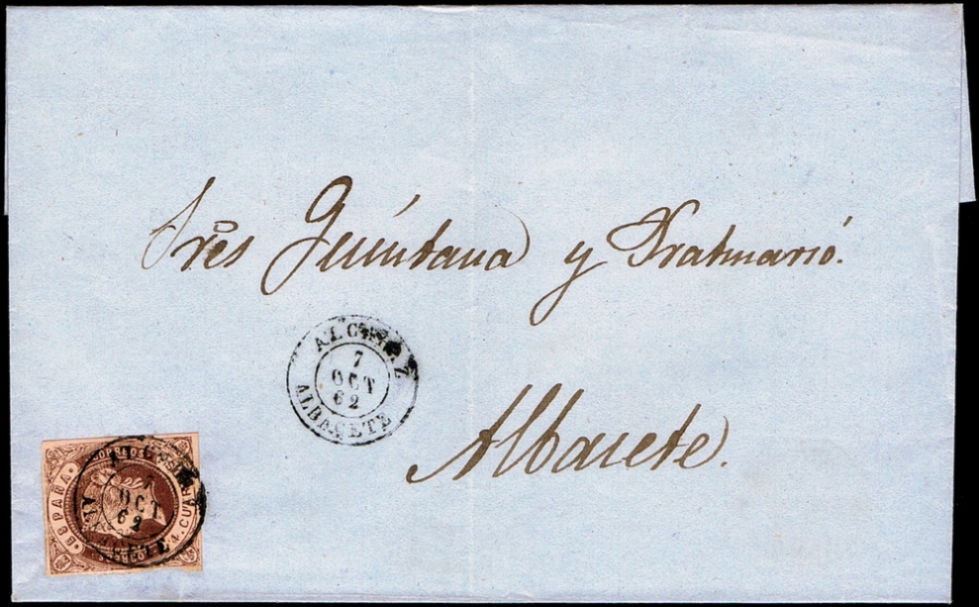 Sres Quintana y Fratmarió.
ALC Z
7
OCT
62
ALBACETE
Albacete.
ESPAÑA
CORREOS
4. CUAR
OCT
62